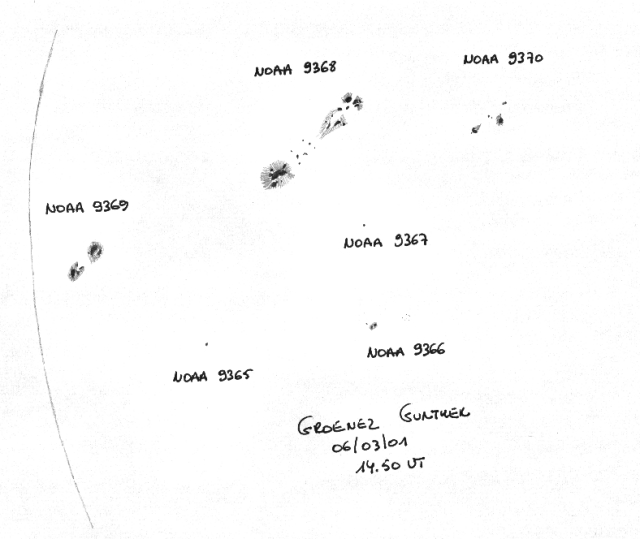 NOAA 9368
NOAA 9370
NOAA 9369
NOAA 9367
NOAA 9366
NOAA 9365
GROENEZ GUNTHER
06/03/01
14.50 UT